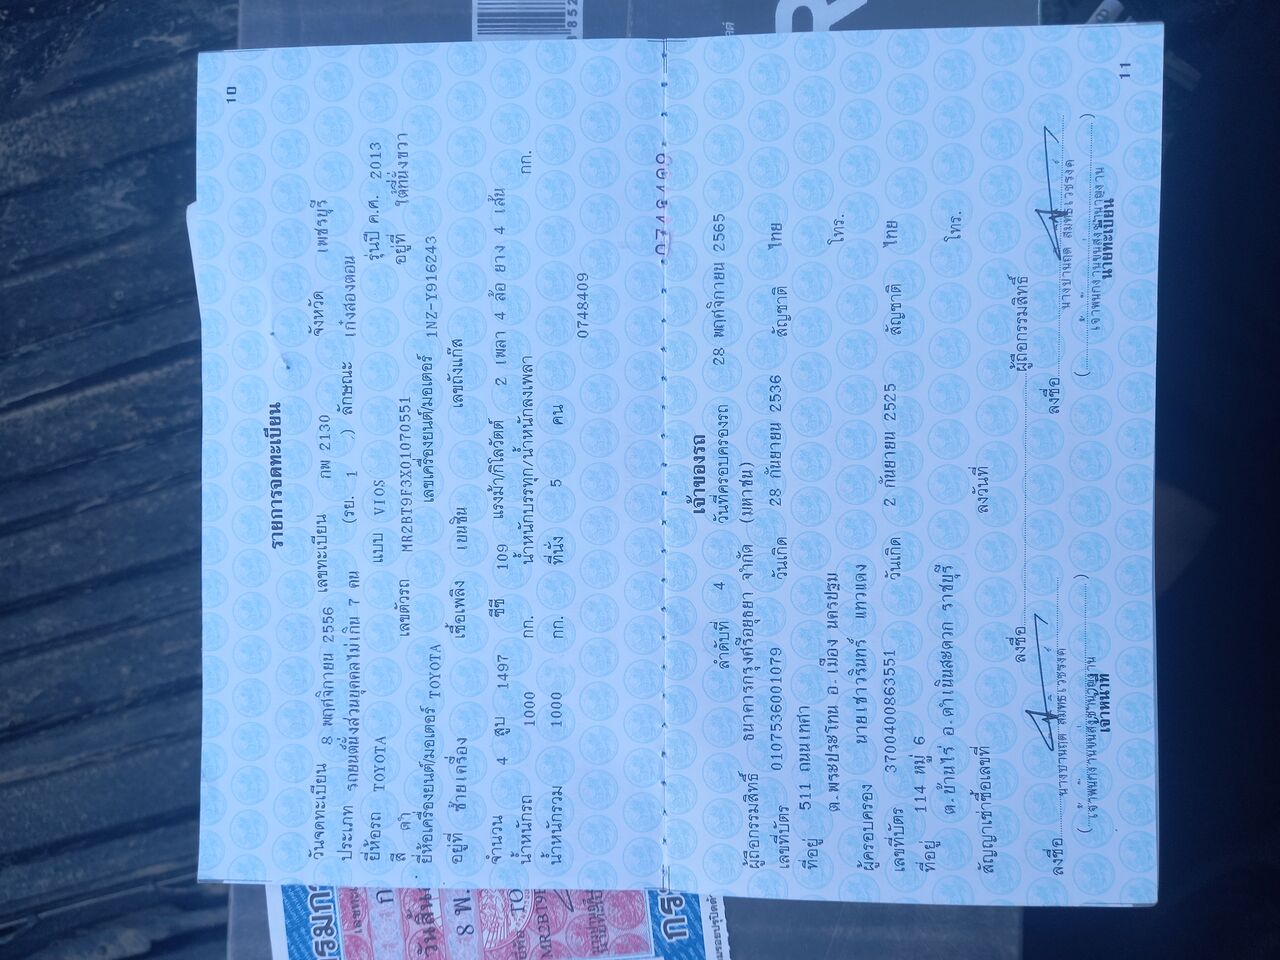 10
รายการจดทะเบียน
วันจดทะเบียน 8 พฤศจิกายน 2556 เลขทะเบียน กพ 2130 จังหวัด เพชรบุรี
ประเภท รถยนต์นั่งส่วนบุคคลไม่เกิน 7 คน (รย. 1 ) ลักษณะ เก๋งสองตอน
ยี่ห้อรถ TOYOTA แบบ VIOS รุ่นปี ค.ศ. 2013
สี ดำ เลขตัวรถ MR2BT9F3X01070551 อยู่ที่ ใต้ที่นั่งขวา
ยี่ห้อเครื่องยนต์/มอเตอร์ TOYOTA เลขเครื่องยนต์/มอเตอร์ 1NZ-Y916243
อยู่ที่ ซ้ายเครื่อง เชื้อเพลิง เบนซิน เลขถังแก๊ส
จำนวน 4 สูบ 1497 ซีซี 109 แรงม้า/กิโลวัตต์ 2 เพลา 4 ล้อ ยาง 4 เส้น
น้ำหนักรถ 1000 กก. น้ำหนักบรรทุก/น้ำหนักลงเพลา กก.
น้ำหนักรวม 1000 กก. ที่นั่ง 5 คน
0748409
0748409
เจ้าของรถ
ลำดับที่ 4 วันที่ครอบครองรถ 28 พฤศจิกายน 2565
ผู้ถือกรรมสิทธิ์ ธนาคารกรุงศรีอยุธยา จำกัด (มหาชน)
เลขที่บัตร 0107536001079 วันเกิด 28 กันยายน 2536 สัญชาติ ไทย
ที่อยู่ 511 ถนนเทศา
ต.พระประโทน อ.เมือง นครปฐม โทร.
ผู้ครอบครอง นายเชาวรินทร์ แทวแดง
เลขที่บัตร 3700400863551 วันเกิด 2 กันยายน 2525 สัญชาติ ไทย
ที่อยู่ 114 หมู่ 6
ต.บ้านไร่ อ.ดำเนินสะดวก ราชบุรี โทร.
สัญญาเช่าซื้อเลขที่ ลงวันที่
ลงชื่อ ผู้ถือกรรมสิทธิ์
ลงชื่อ ลงชื่อ
เจ้าหน้าที่ นายทะเบียน
11